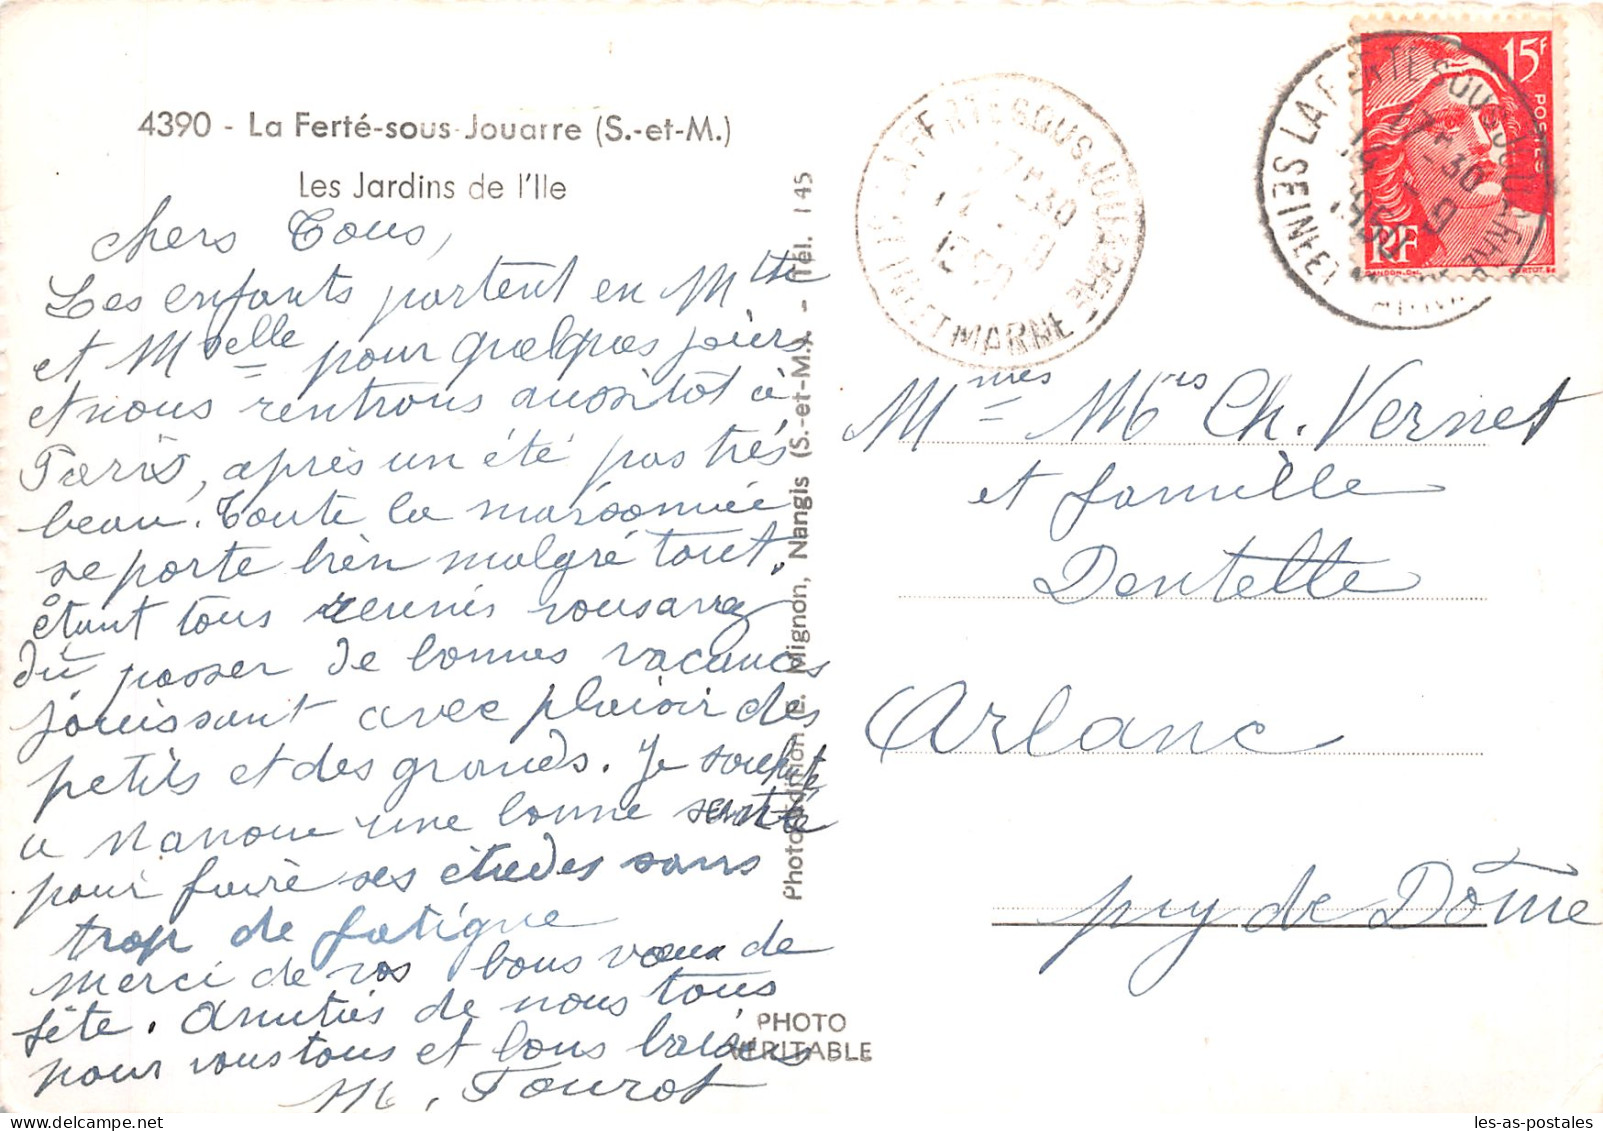 4390 - La Ferté-sous-Jouarre (S.-et-M.)
Les Jardins de l'Ile
chers Tous,
Les enfants partent en Mthe
et Moselle pour quelques jours
et nous rentrons aussitôt à
Paris, après un été pas très
beau. Toute la maisonnée
se porte bien malgré tout.
étant tous réunis vous avez
dû passer de bonnes vacances
jouissant avec plaisir des
petits et des grands. Je souhaite
a Nanou une bonne santé
pour faire ses études sans
trop de fatigue
Merci de vos bons vœux de
fête. Amitiés de nous tous
pour vous tous et bons baisers
M. Tourot
Photo-édition E. Mignon, Nangis (S.-et-M.). - Tél. 145
PHOTO
VÉRITABLE
LA FERTE SOUS JOUARRE
17H30
1950
SEINE ET MARNE
15F
POSTES
RF
Mmes Mrs Ch. Vernet
et famille
Dentelle
Arlanc
puy de Dôme
les-as-postales